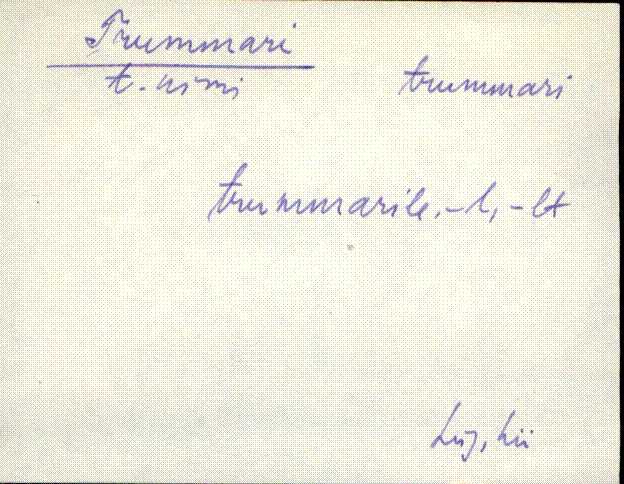 Trummari
t. nimi trummari
trummarile, -l, -lt